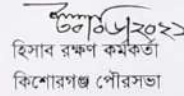 হিসাব রক্ষণ কর্মকর্তা
কিশোরগঞ্জ পৌরসভা